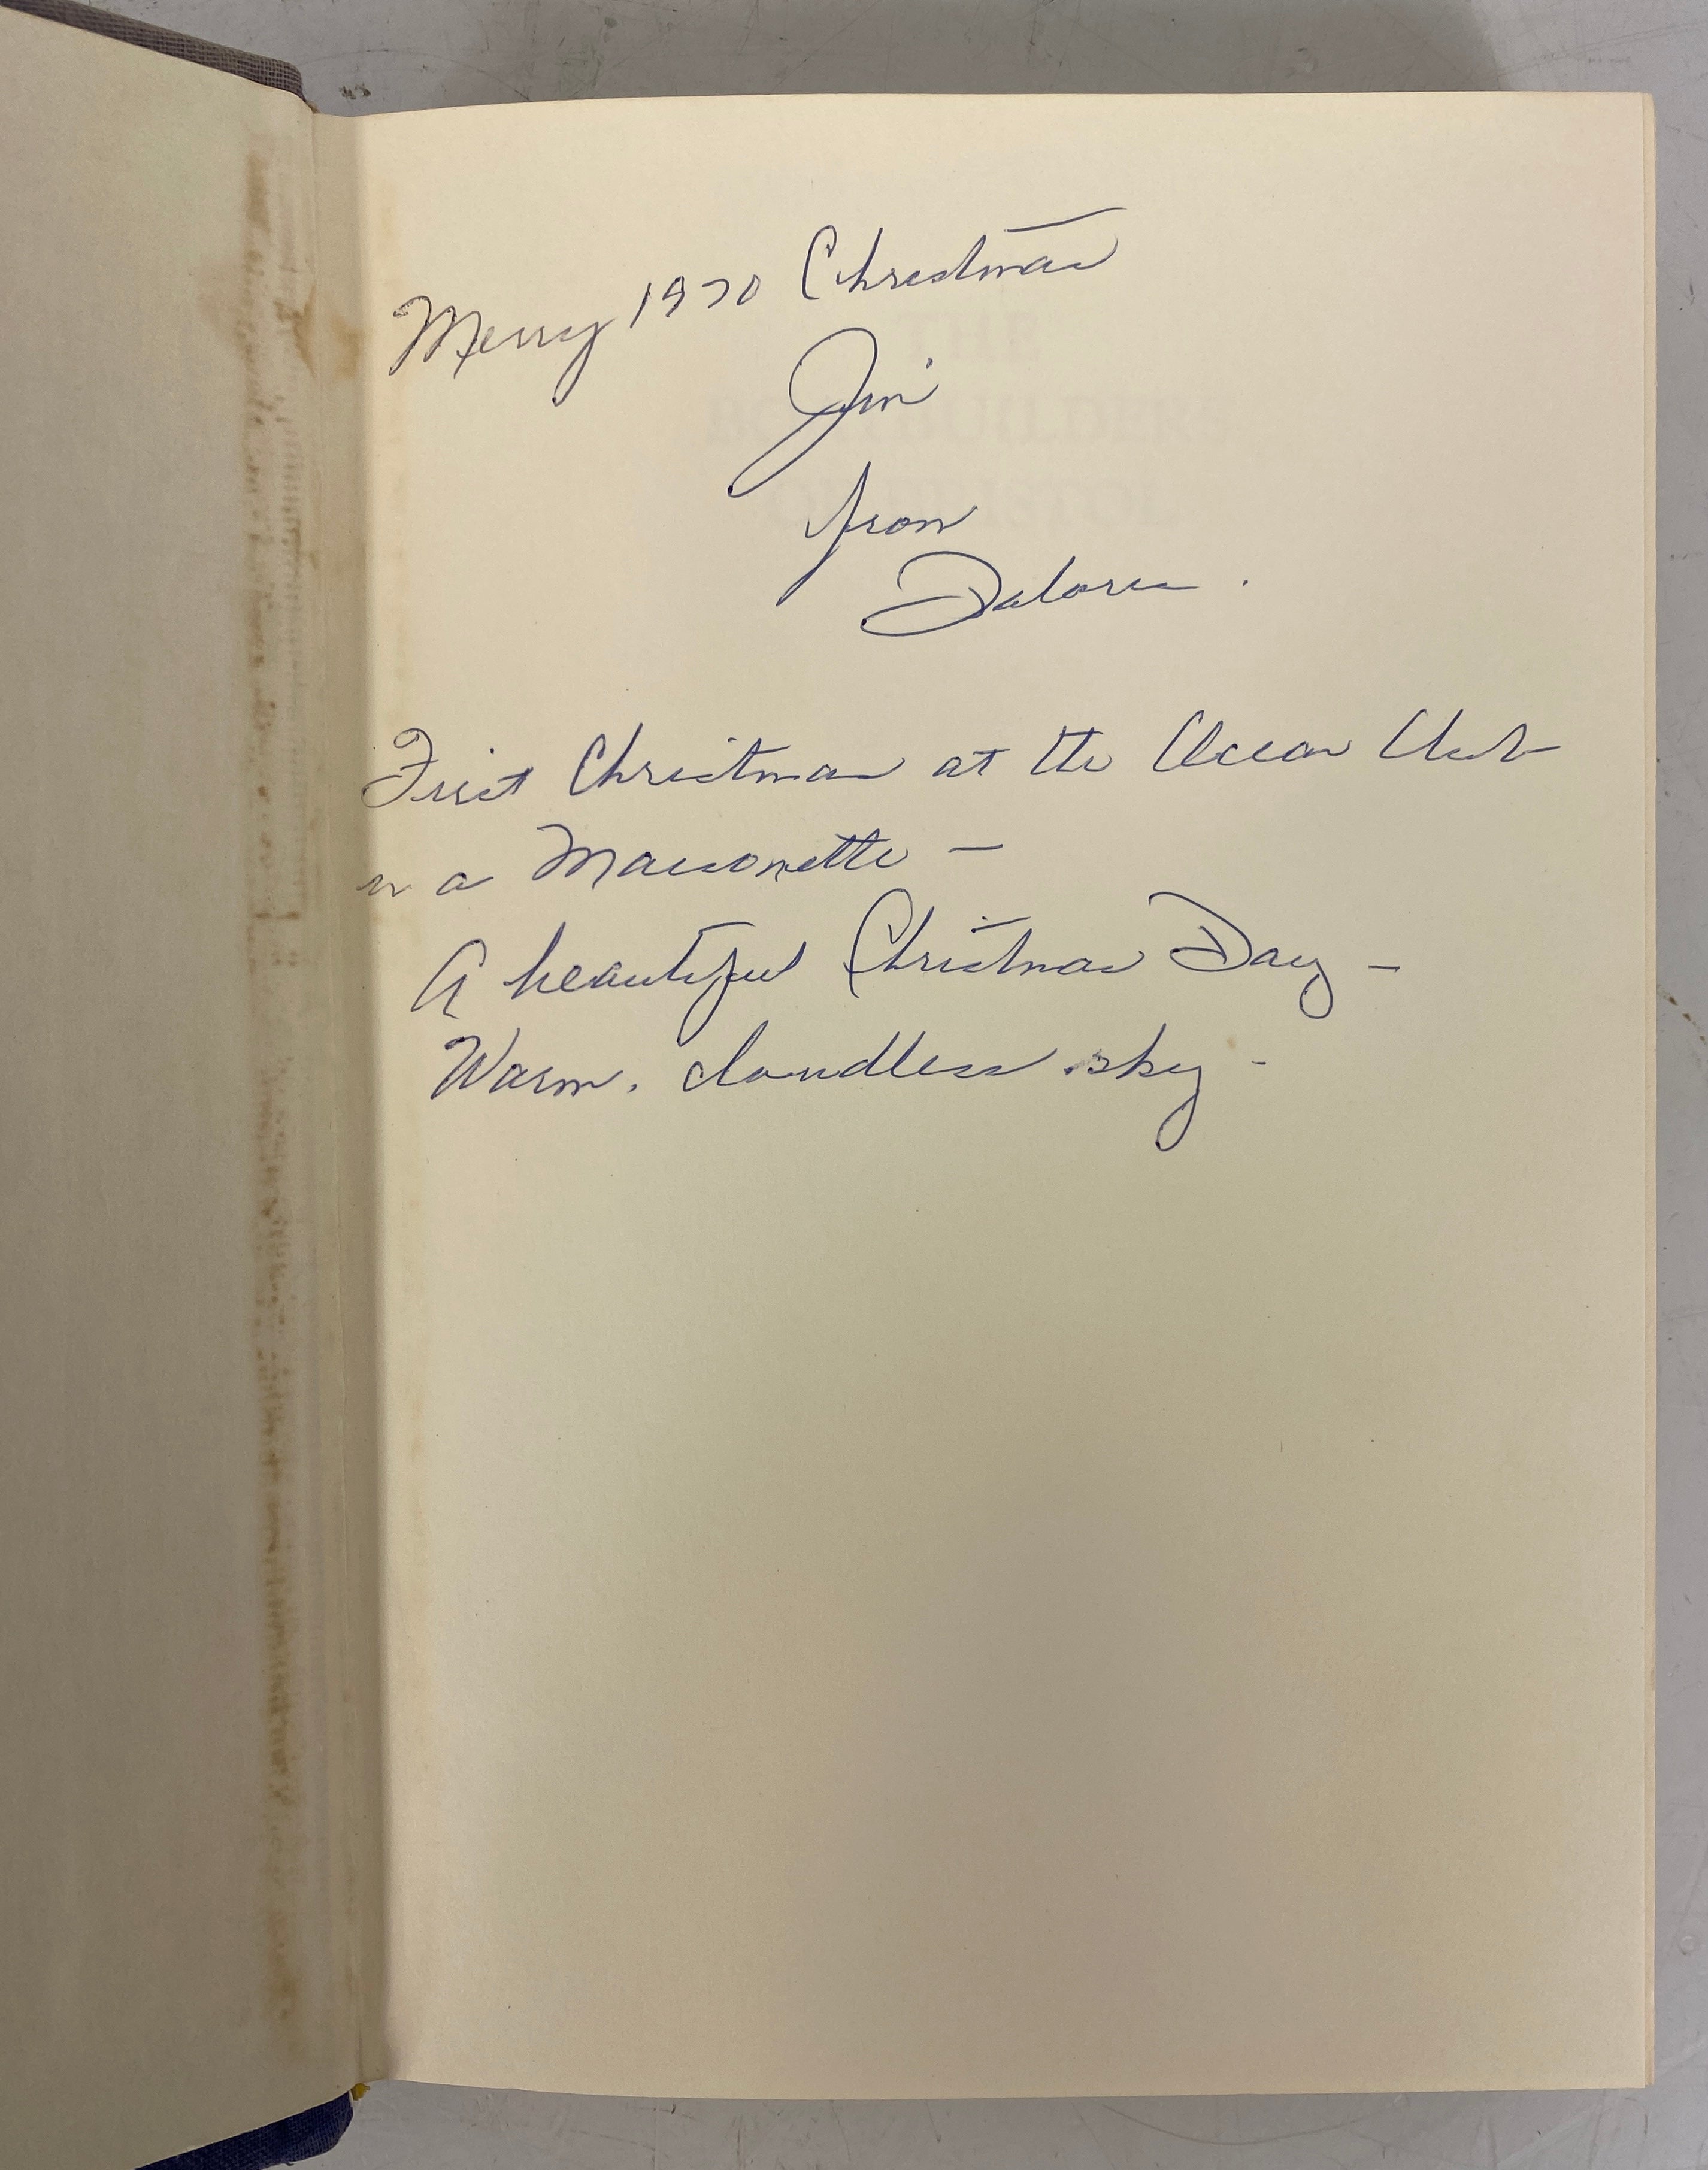 Merry 1970 Christmas
Jim
from
Dolores.
First Christmas at the Ocean Club
in a Maisonette —
A beautiful Christmas Day –
Warm, cloudless sky -